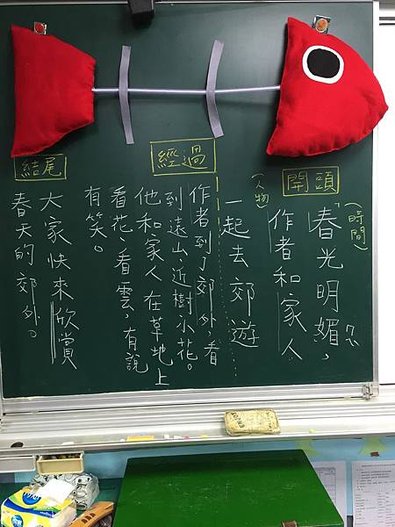 開頭
(時間)
春光明媚，
(人物)
作者和家人
一起去郊遊
經過
作者到了郊外看
到遠山、近樹小花。
他和家人在草地上
看花、看雲，有說
有笑。
結尾
大家快來欣賞
春天的郊外。